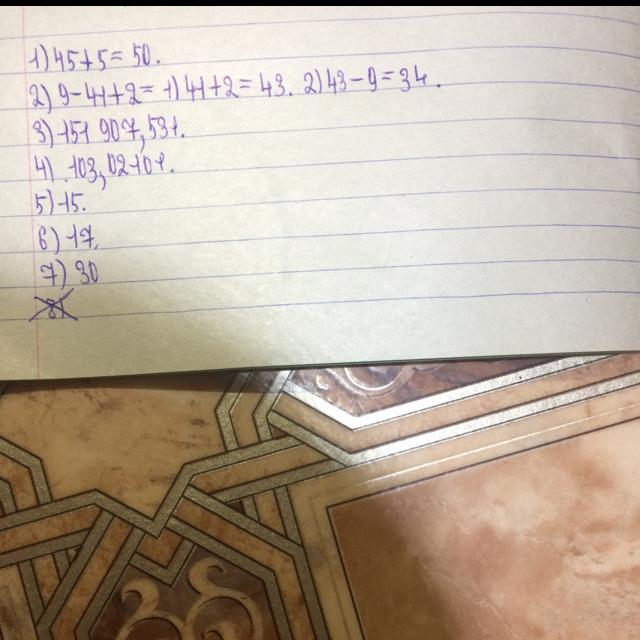 1) 45+5= 50.
2) 9-41+2= 1) 41+2= 43. 2) 43-9=34.
3) 151 907, 531.
4) 103,
5) 15.
6) 17,
7) 30